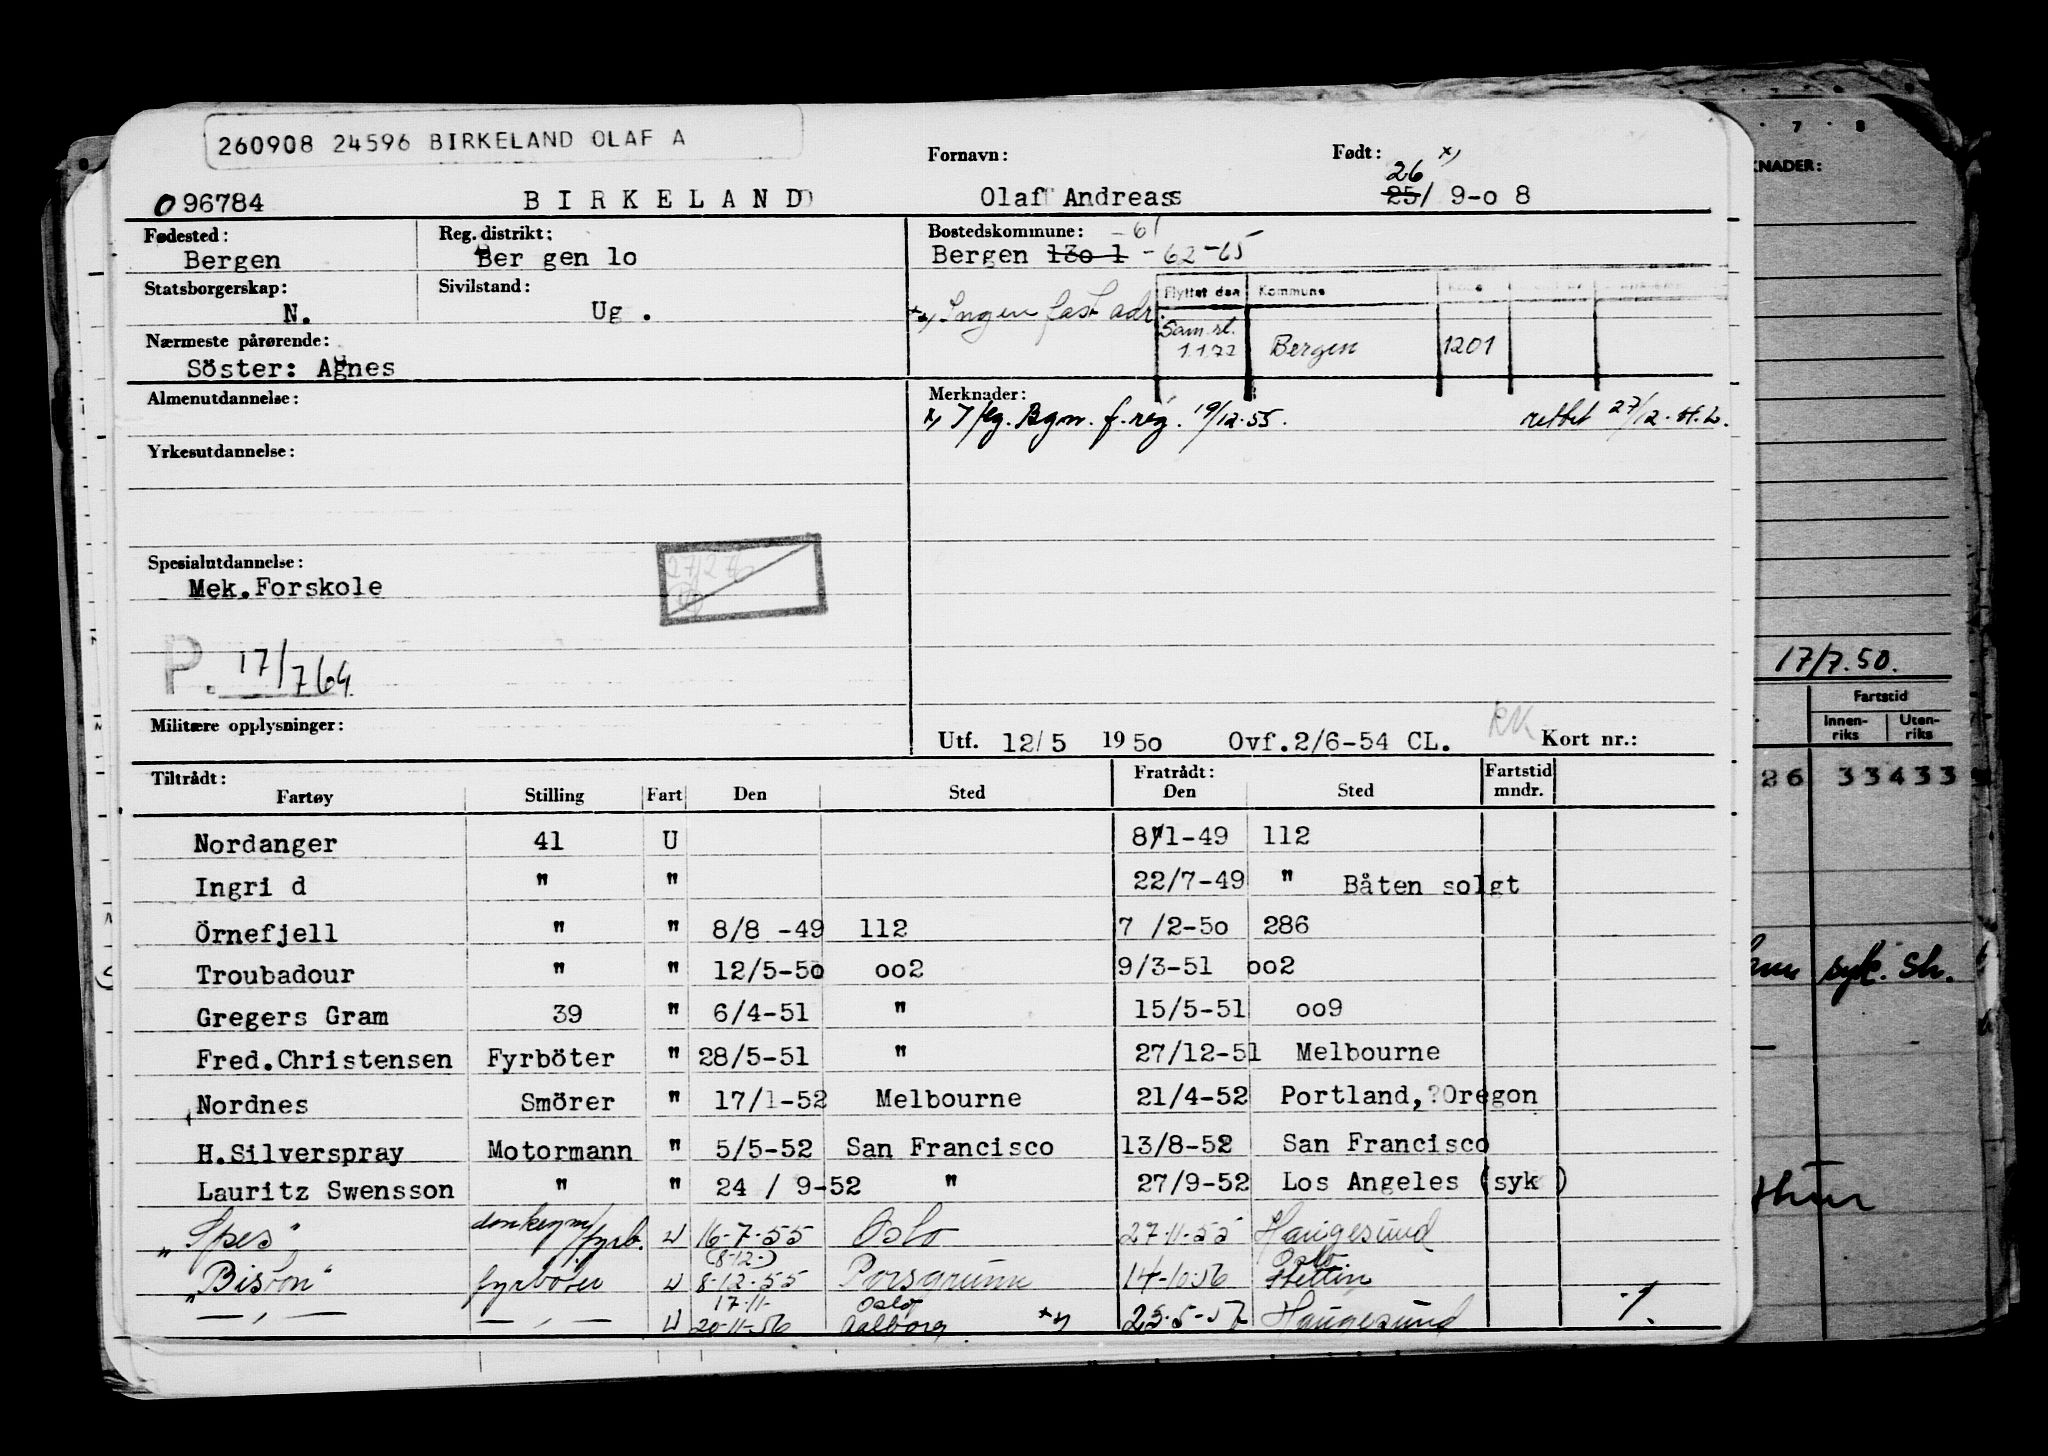 260908 24596 BIRKELAND OLAF A
Fornavn: Født: x)
26
096784 BIRKELAND Olaf Andreas 25/ 9-o 8
Fødested: Reg. distrikt: Bostedskommune: -61
Bergen Bergen lo Bergen 13o 1 - 62-65
Statsborgerskap: Sivilstand: Flyttet den Kommune
N. Ug . xx) Ingen fast adr.
Sam. st.
1.1.72 Bergen 1201
Nærmeste pårørende:
Söster: Agnes
Almenutdannelse: Merknader:
x) Bgn. f.reg. 19/12-55. rettet 27/12.
Yrkesutdannelse:
Spesialutdannelse:
Mek.Forskole
P. 17/7 64
Militære opplysninger:
Utf. 12/5 1950 Ovf.2/6-54 CL. RK Kort nr.:
Tiltrådt: Fratrådt: Fartstid
Fartøy Stilling Fart Den Sted Den Sted mndr.
Nordanger 41 U 8/1-49 112
Ingri d " " 22/7-49 " Båten solgt
Örnefjell " " 8/8 -49 112 7 /2-5o 286
Troubadour " " 12/5-5o oo2 9/3-51 oo2
Gregers Gram 39 " 6/4-51 " 15/5-51 oo9
Fred.Christensen Fyrböter " 28/5-51 " 27/12-51 Melbourne
Nordnes Smörer " 17/1-52 Melbourne 21/4-52 Portland,?Oregon
H.Silverspray Motormann " 5/5-52 San Francisco 13/8-52 San Francisco
Lauritz Swensson " " 24 / 9-52 " 27/9-52 Los Angeles (syk )
"Spes" donkeym/fyrb. U 16-7-55 Oslo 27-11-55 Haugesund
(8-12-) Oslo
"Bison" fyrbøter U 8-12-55 Porsgrunn 14-10-56 Stettin
17-11- Oslo
— " — — " — U 20-11-56 Aalborg xx) 25-5-57 Haugesund -1.
7 8
KNADER:
17/7.50.
Fartstid
Innen-riks Uten-riks
26 33433
syk. Sh.